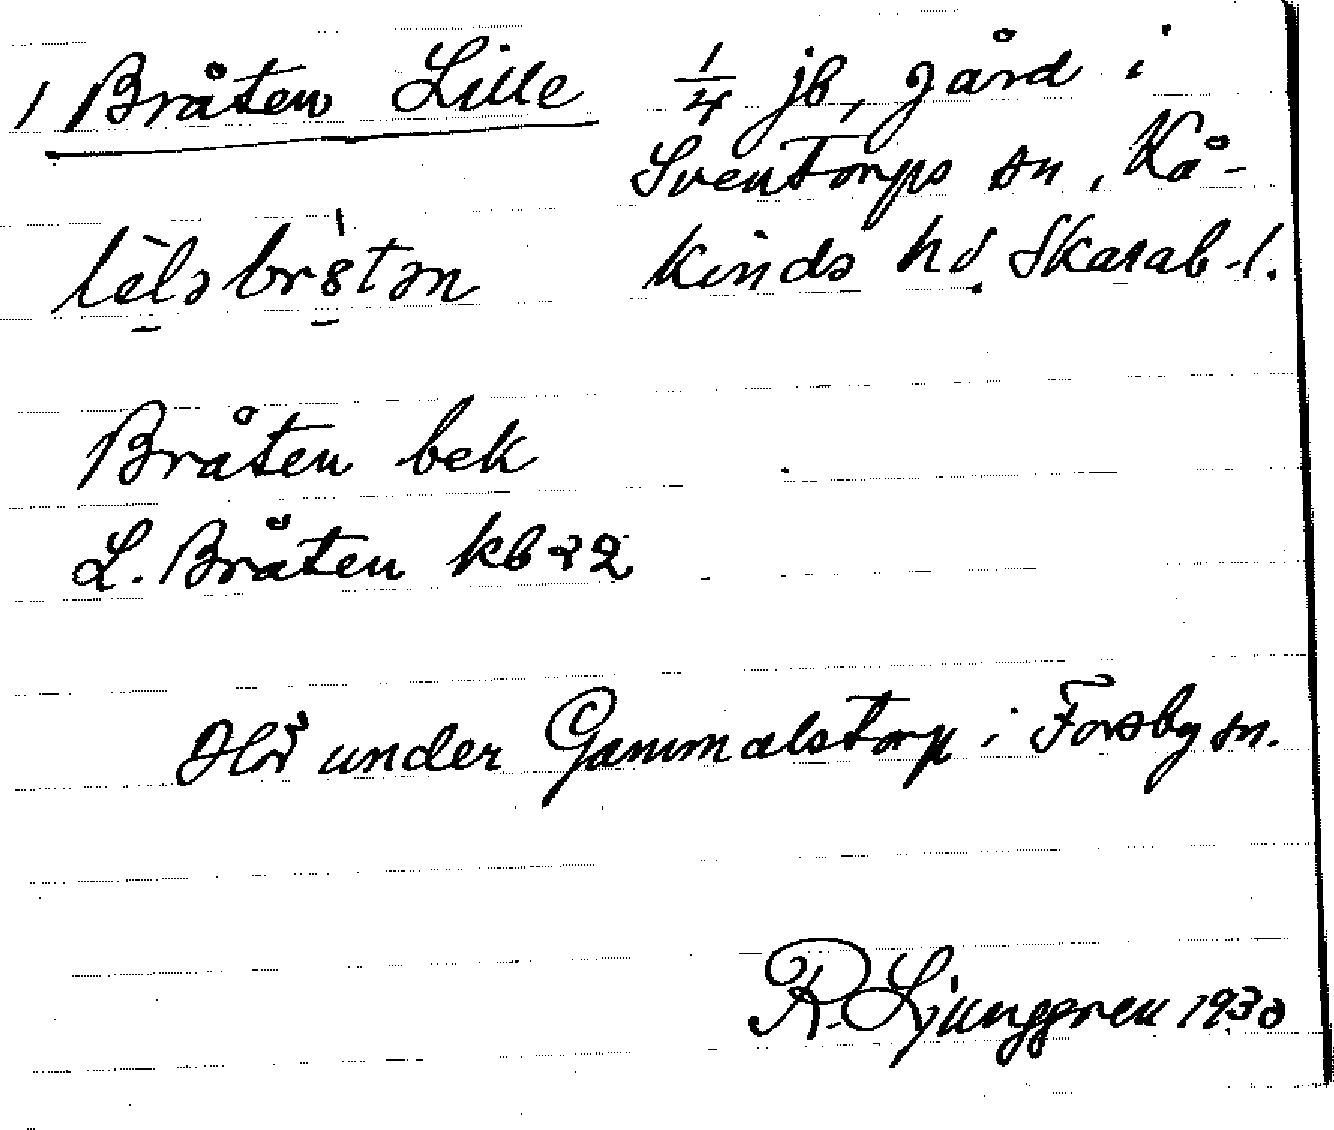 1 Bråten Lille 1/4 jb, gård i
Sventorps sn, Kå-
kinds hd Skarab-l.
Bråten bek
L. Bråten kb 22
Hör under Gammalstorp i Forsby sn.
R. Ljunggren 1930